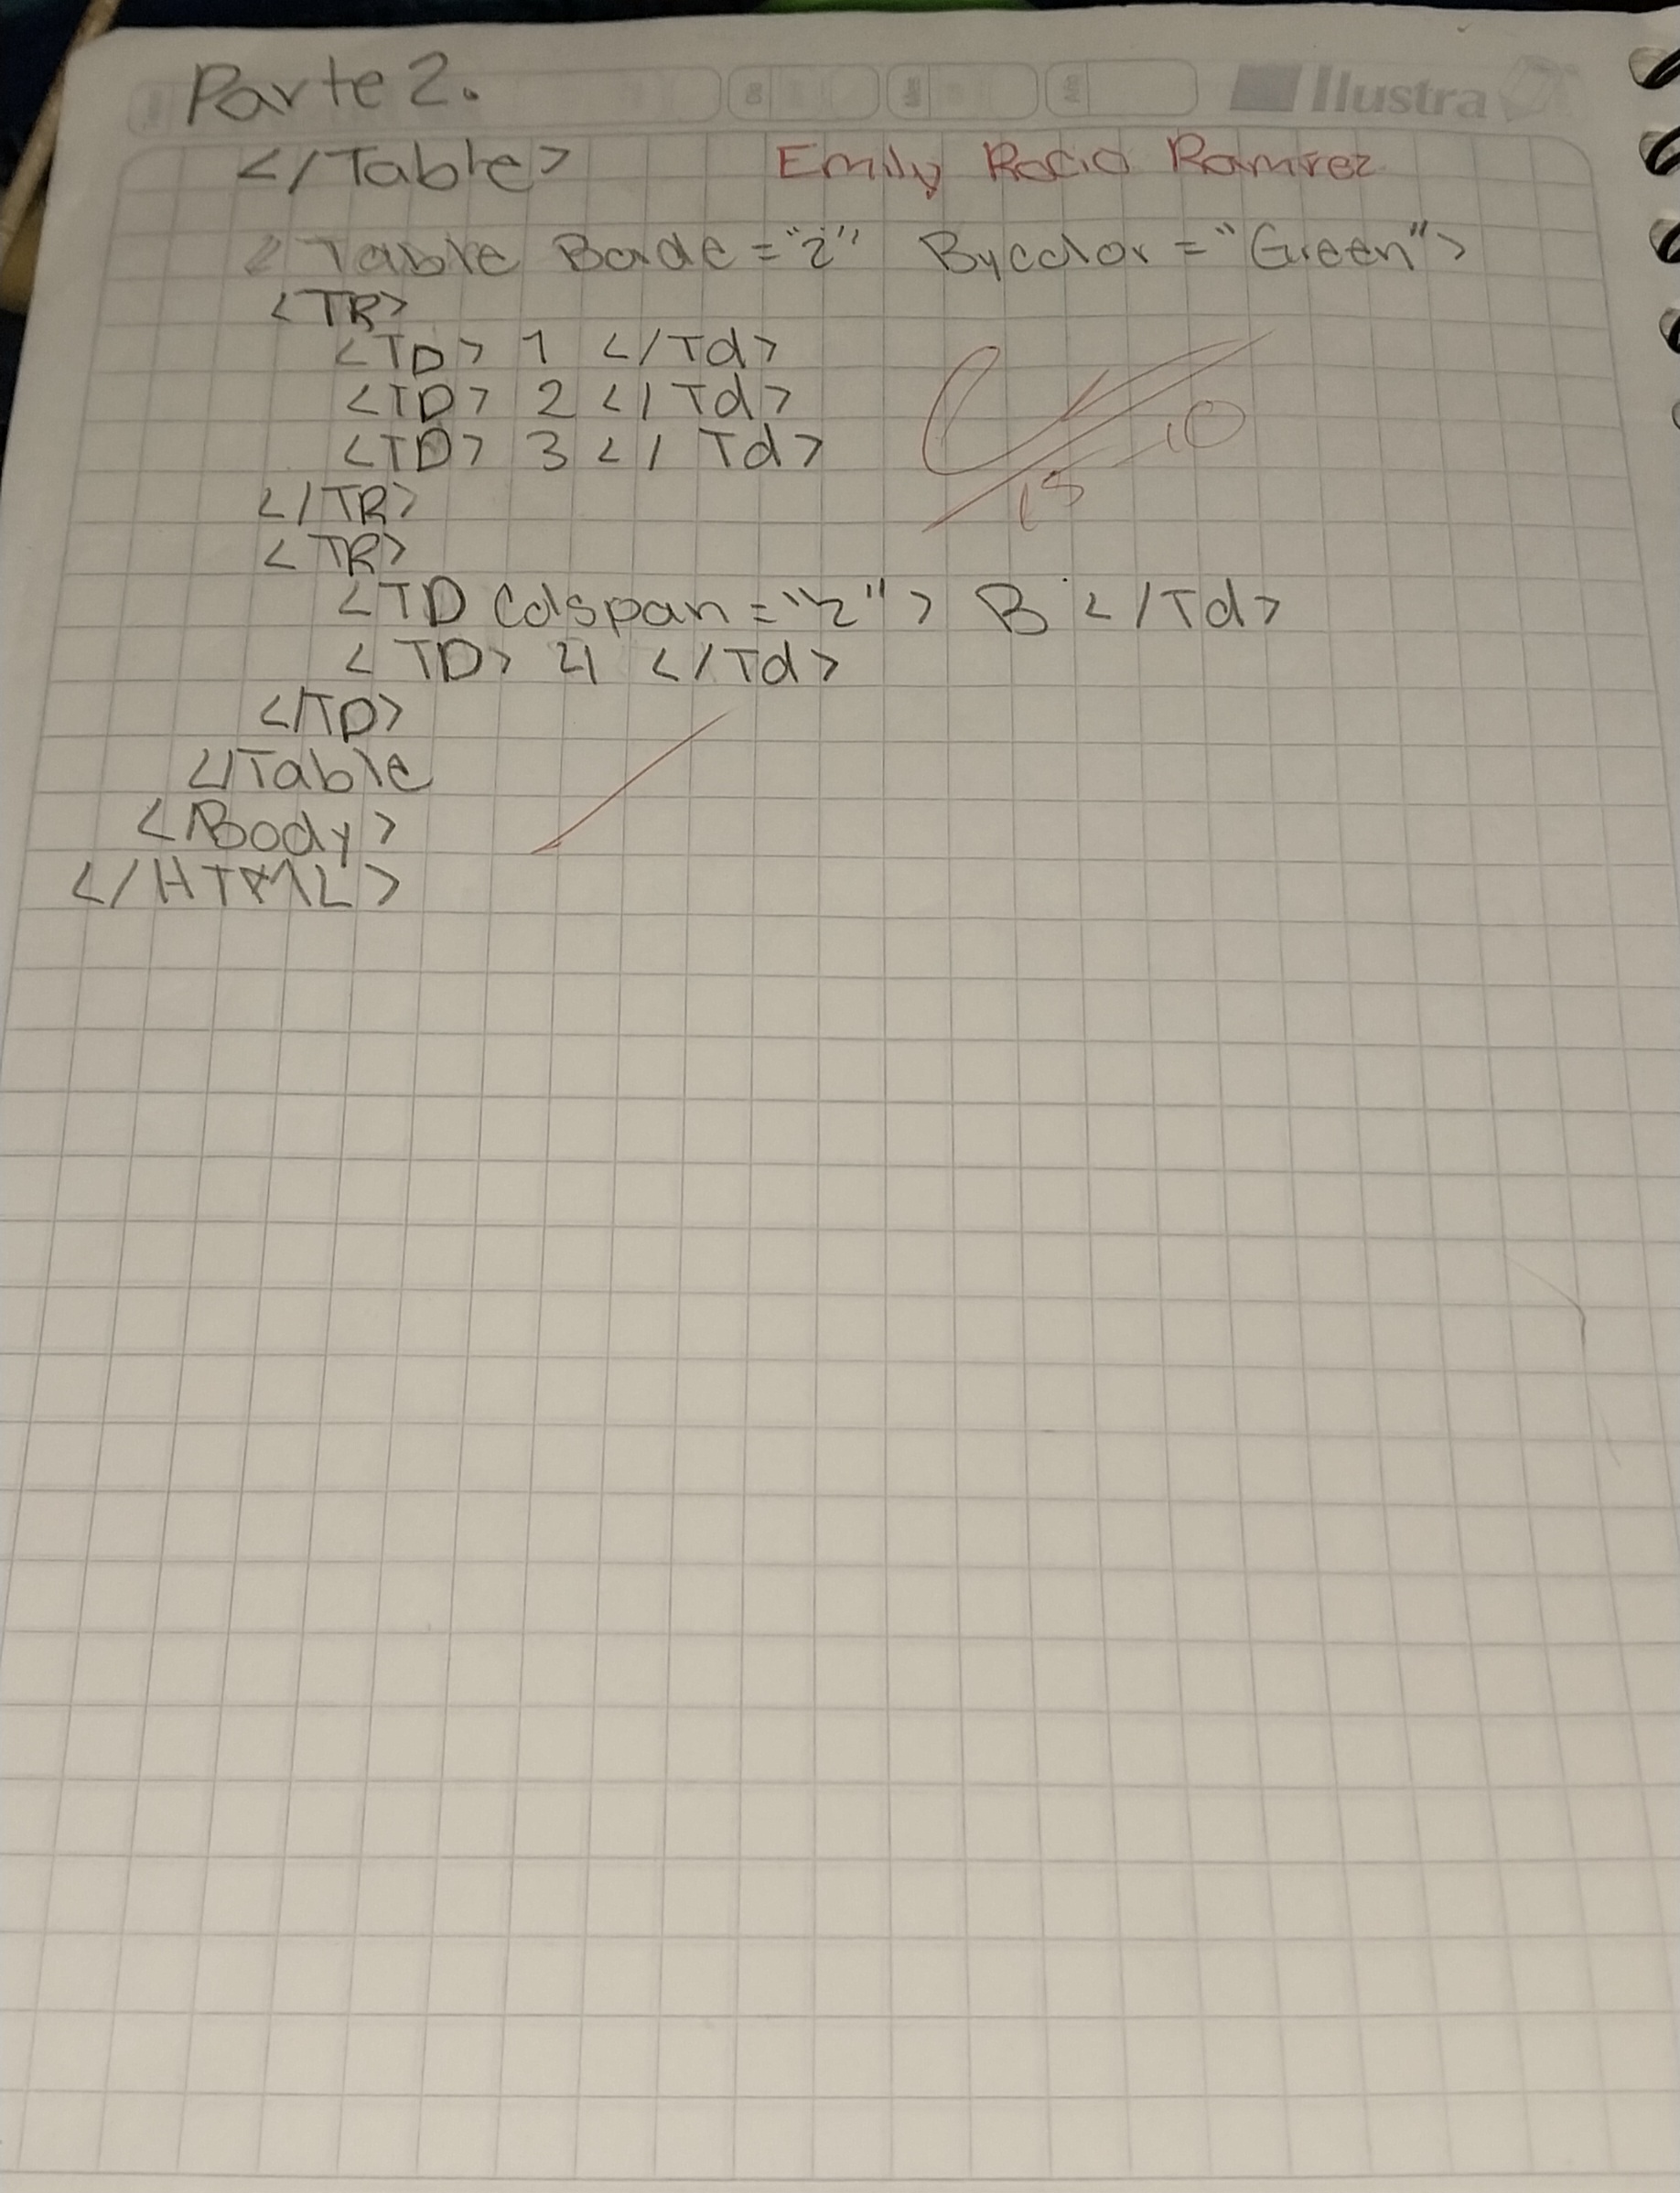 Parte 2.
Ilustra
</Table>
Emily Rocio Ramirez
< Table Borde = "2" Bycolor = "Green">
<TR>
<TD> 1 </Td>
<TD> 2 </Td>
<TD> 3 </Td>
</TR>
<TR>
<TD Colspan = "2"> B </Td>
<TD> 4 </Td>
</TD>
</Table
</Body>
</HTML>